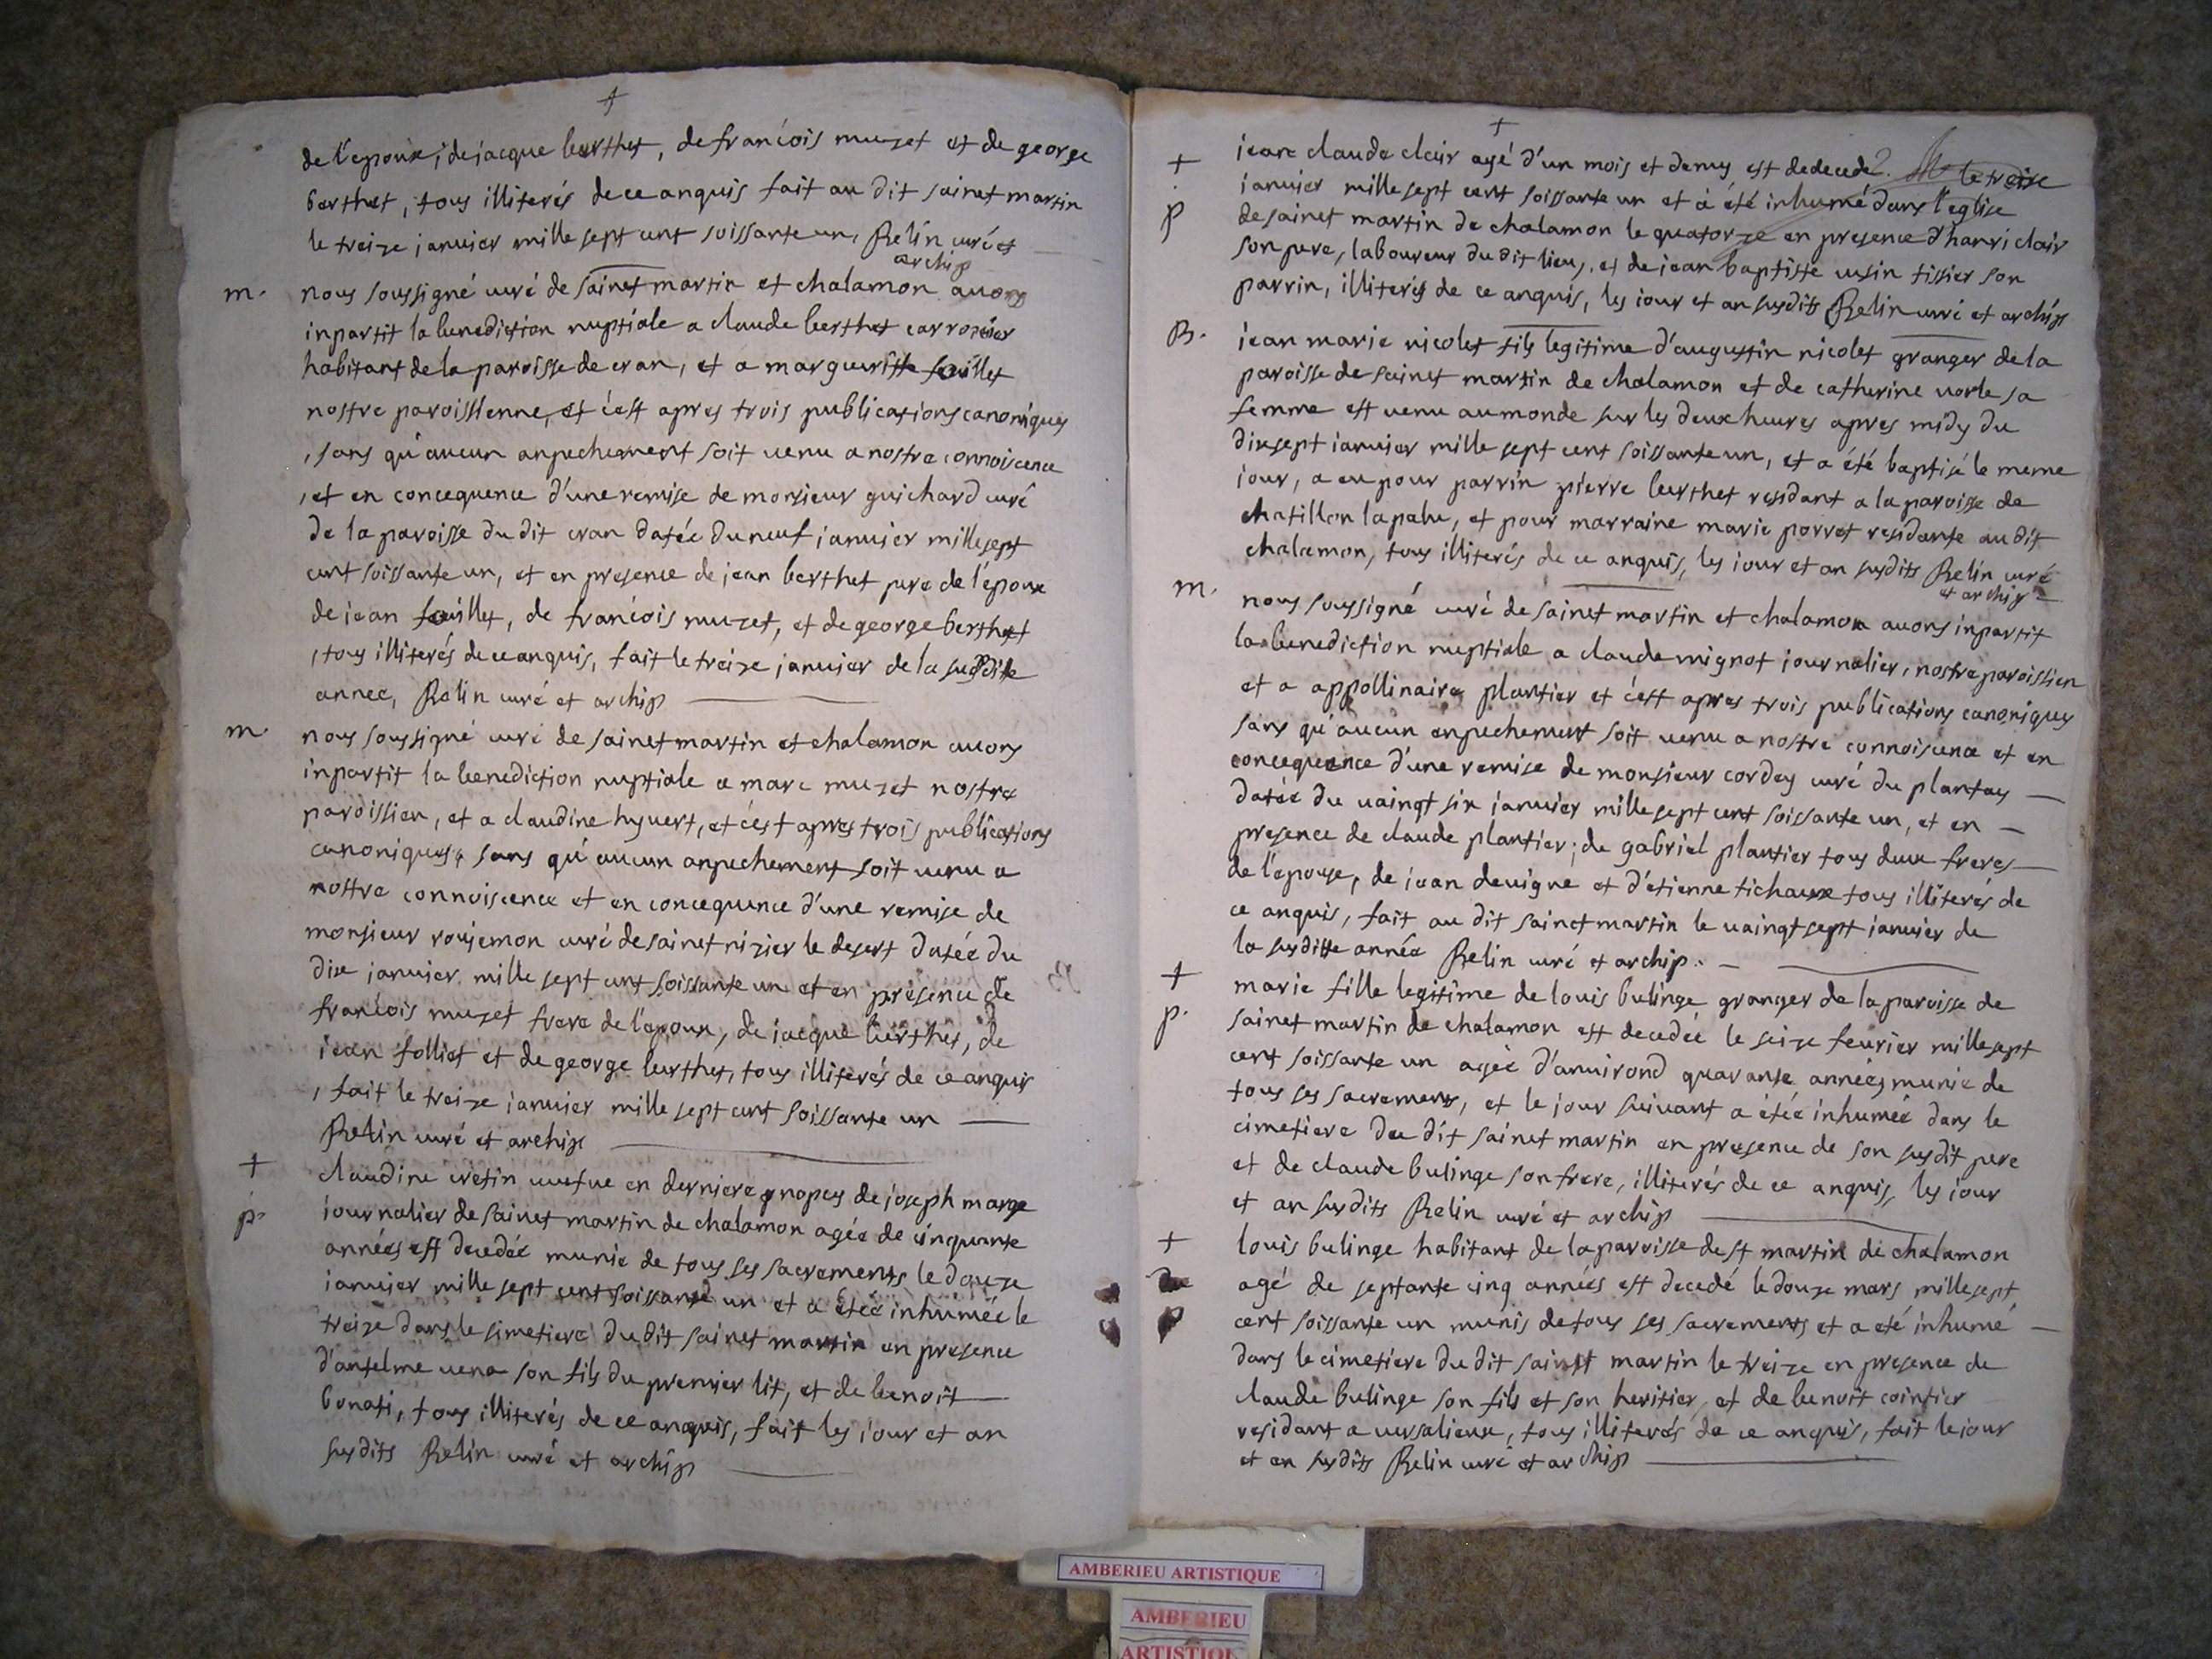 de l'epoux, de jacque berthet, de francois muzet et de george
berthet, tous illiterés de ce anquis fait au dit sainct martin
le treize janvier mille sept cent soissante un, Relin curé et
archip
m. nous soussigné curé de sainct martin et chalamon avons
inpartit la benediction nuptiale a claude berthet
habitant de la paroisse de cran, et a margueritte fouillet
nostre paroissienne, et c'est apres trois publications canoniques
, sans qu'aucun anpechement soit venu a nostre connoiscence
, et en concequence d'une remise de monsieur guichard curé
de la paroisse du dit cran datéé du neuf janvier mille sept
cent soissante un, et en presence de jean berthet pere de l'époux
de jean fouillet, de francois muzet, et de george berthet
, tous illiterés de ce anquis, fait le treize janvier de la susditte
annee, Relin curé et archip
m. nous soussigné curé de sainct martin et chalamon avons
inpartit la benediction nuptiale a marc muzet nostre
paroissien, et a claudine huvert, et c'est apres trois publications
canoniques, sans qu'aucun anpechement soit venu a
nostre connoiscence et en concequence d'une remise de
monsieur roujemon curé de sainct nizier le desert datéé du
dix janvier mille sept cent soissante un et en presence de
francois muzet frere de l'epoux, de jacque berthet, de
jean folliet et de george berthet, tous illiterés de ce anquis
, fait le treize janvier mille sept cent soissante un
Relin curé et archip
+ claudine cretin veufve en derniere nopces de joseph marge
p. journalier de sainct martin de chalamon agéé de cinquante
années est decedéé munie de tous ses sacrements le douze
janvier mille sept cent soissante un et a étéé inhuméé le
treize dans le simetiere du dit sainct martin en presence
d'antelme vena son fils du premier lit, et de benoit
bonati, tous illiterés de ce anquis, fait les jour et an
susdits Relin curé et archip
+ jean claude clair agé d'un mois et demy est dedecede le treize
janvier mille sept cent soissante un et a été inhumé dans l'eglise
p de sainct martin de chalamon le quatorze en presence d'hanri clair
son pere, laboureur du dit lieu, et de jean baptiste tissier son
parrin, illiterés de ce anquis, les jour et an susdits Relin curé et archip
B. jean marie nicolet fils legitime d'augustin nicolet granger de la
paroisse de sainct martin de chalamon et de catherine vorle sa
femme est venu au monde sur les deux heures apres midy du
dixsept janvier mille sept cent soissante un, et a été baptisé le meme
jour, a eu pour parrin pierre berthet residant a la paroisse de
chatillon lapalu, et pour marraine marie porret residante au dit
chalamon, tous illiterés de ce anquis, les jour et an susdits Relin curé
et archip
m. nous soussigné curé de sainct martin et chalamon avons inpartit
la benediction nuptiale a claude mignot journalier, nostre paroissien
et a appollinaire plantier et c'est apres trois publications canoniques
sans qu'aucun enpechement soit venu a nostre connoiscence et en
concequence d'une remise de monsieur cordey curé du plantay
datéé du vaingt six janvier mille sept cent soissante un, et en
presence de claude plantier, de gabriel plantier tous deux freres
de l'epouse, de jean devigne et d'etienne tichaux tous illiterés de
ce anquis, fait au dit sainct martin le vaingt sept janvier de
la susditte année Relin curé et archip.
+ marie fille legitime de louis bulinge granger de la paroisse de
p. sainct martin de chalamon est decedéé le seize fevrier mille sept
cent soissante un agéé d'anvirond quarante années munie de
tous ses sacrements, et le jour suivant a étéé inhuméé dans le
cimetiere du dit sainct martin en presence de son susdit pere
et de claude bulinge son frere, illiterés de ce anquis, les jour
et an susdits Relin curé et archip
+ louis bulinge habitant de la paroisse de st martin de chalamon
agé de septante cinq années est decedé le douze mars mille sept
p cent soissante un munis de tous ses sacrements et a eté inhumé
dans le cimetiere du dit sainct martin le treize en presence de
claude bulinge son fils et son heritier, et de benoit cointier
residant a versalieux, tous illiterés de ce anquis, fait le jour
et an susdits Relin curé et archip
AMBERIEU ARTISTIQUE
AMBERIEU
ARTISTIQU